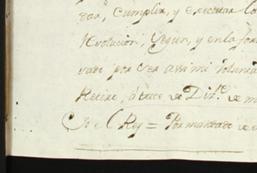 dar, Cumplir, y executar lo
Revolucion, Segun, y en la for
vado por ser assi mi voluntad
Retiro, à trece de Diz.e de m
Yo el Rey = Por mandado de